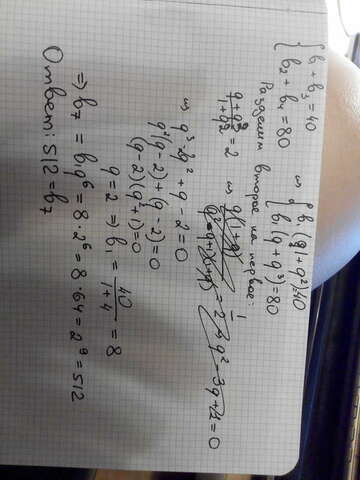 { b + b₃ = 40
b₂ + b₄ = 80
⇔ { b₁ (1 + q²) = 40
b₁ (q + q³) = 80
Разделим второе на первое:
q + q³ / 1 + q² = 2 ⇔
⇔ q³ - 2q² + q - 2 = 0
q²(q - 2) + (q - 2) = 0
(q - 2)(q² + 1) = 0
q = 2 ⇒ b₁ = 40 / 1 + 4 = 8
⇒ b₇ = b₁q⁶ = 8 · 2⁶ = 8 · 64 = 2⁹ = 512
Ответ: 512 = b₇